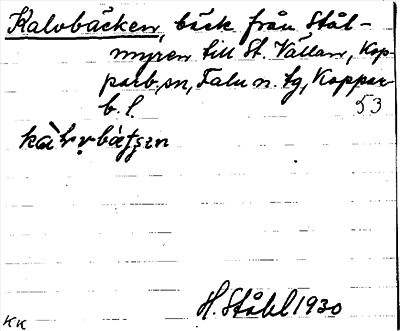 Kalvbäcken, bäck från Stål-
myren till St. Vällan, Kop-
parb. sn, Falu n. tg, Koppar-
b. l.
53
H. Ståhl 1930
KK